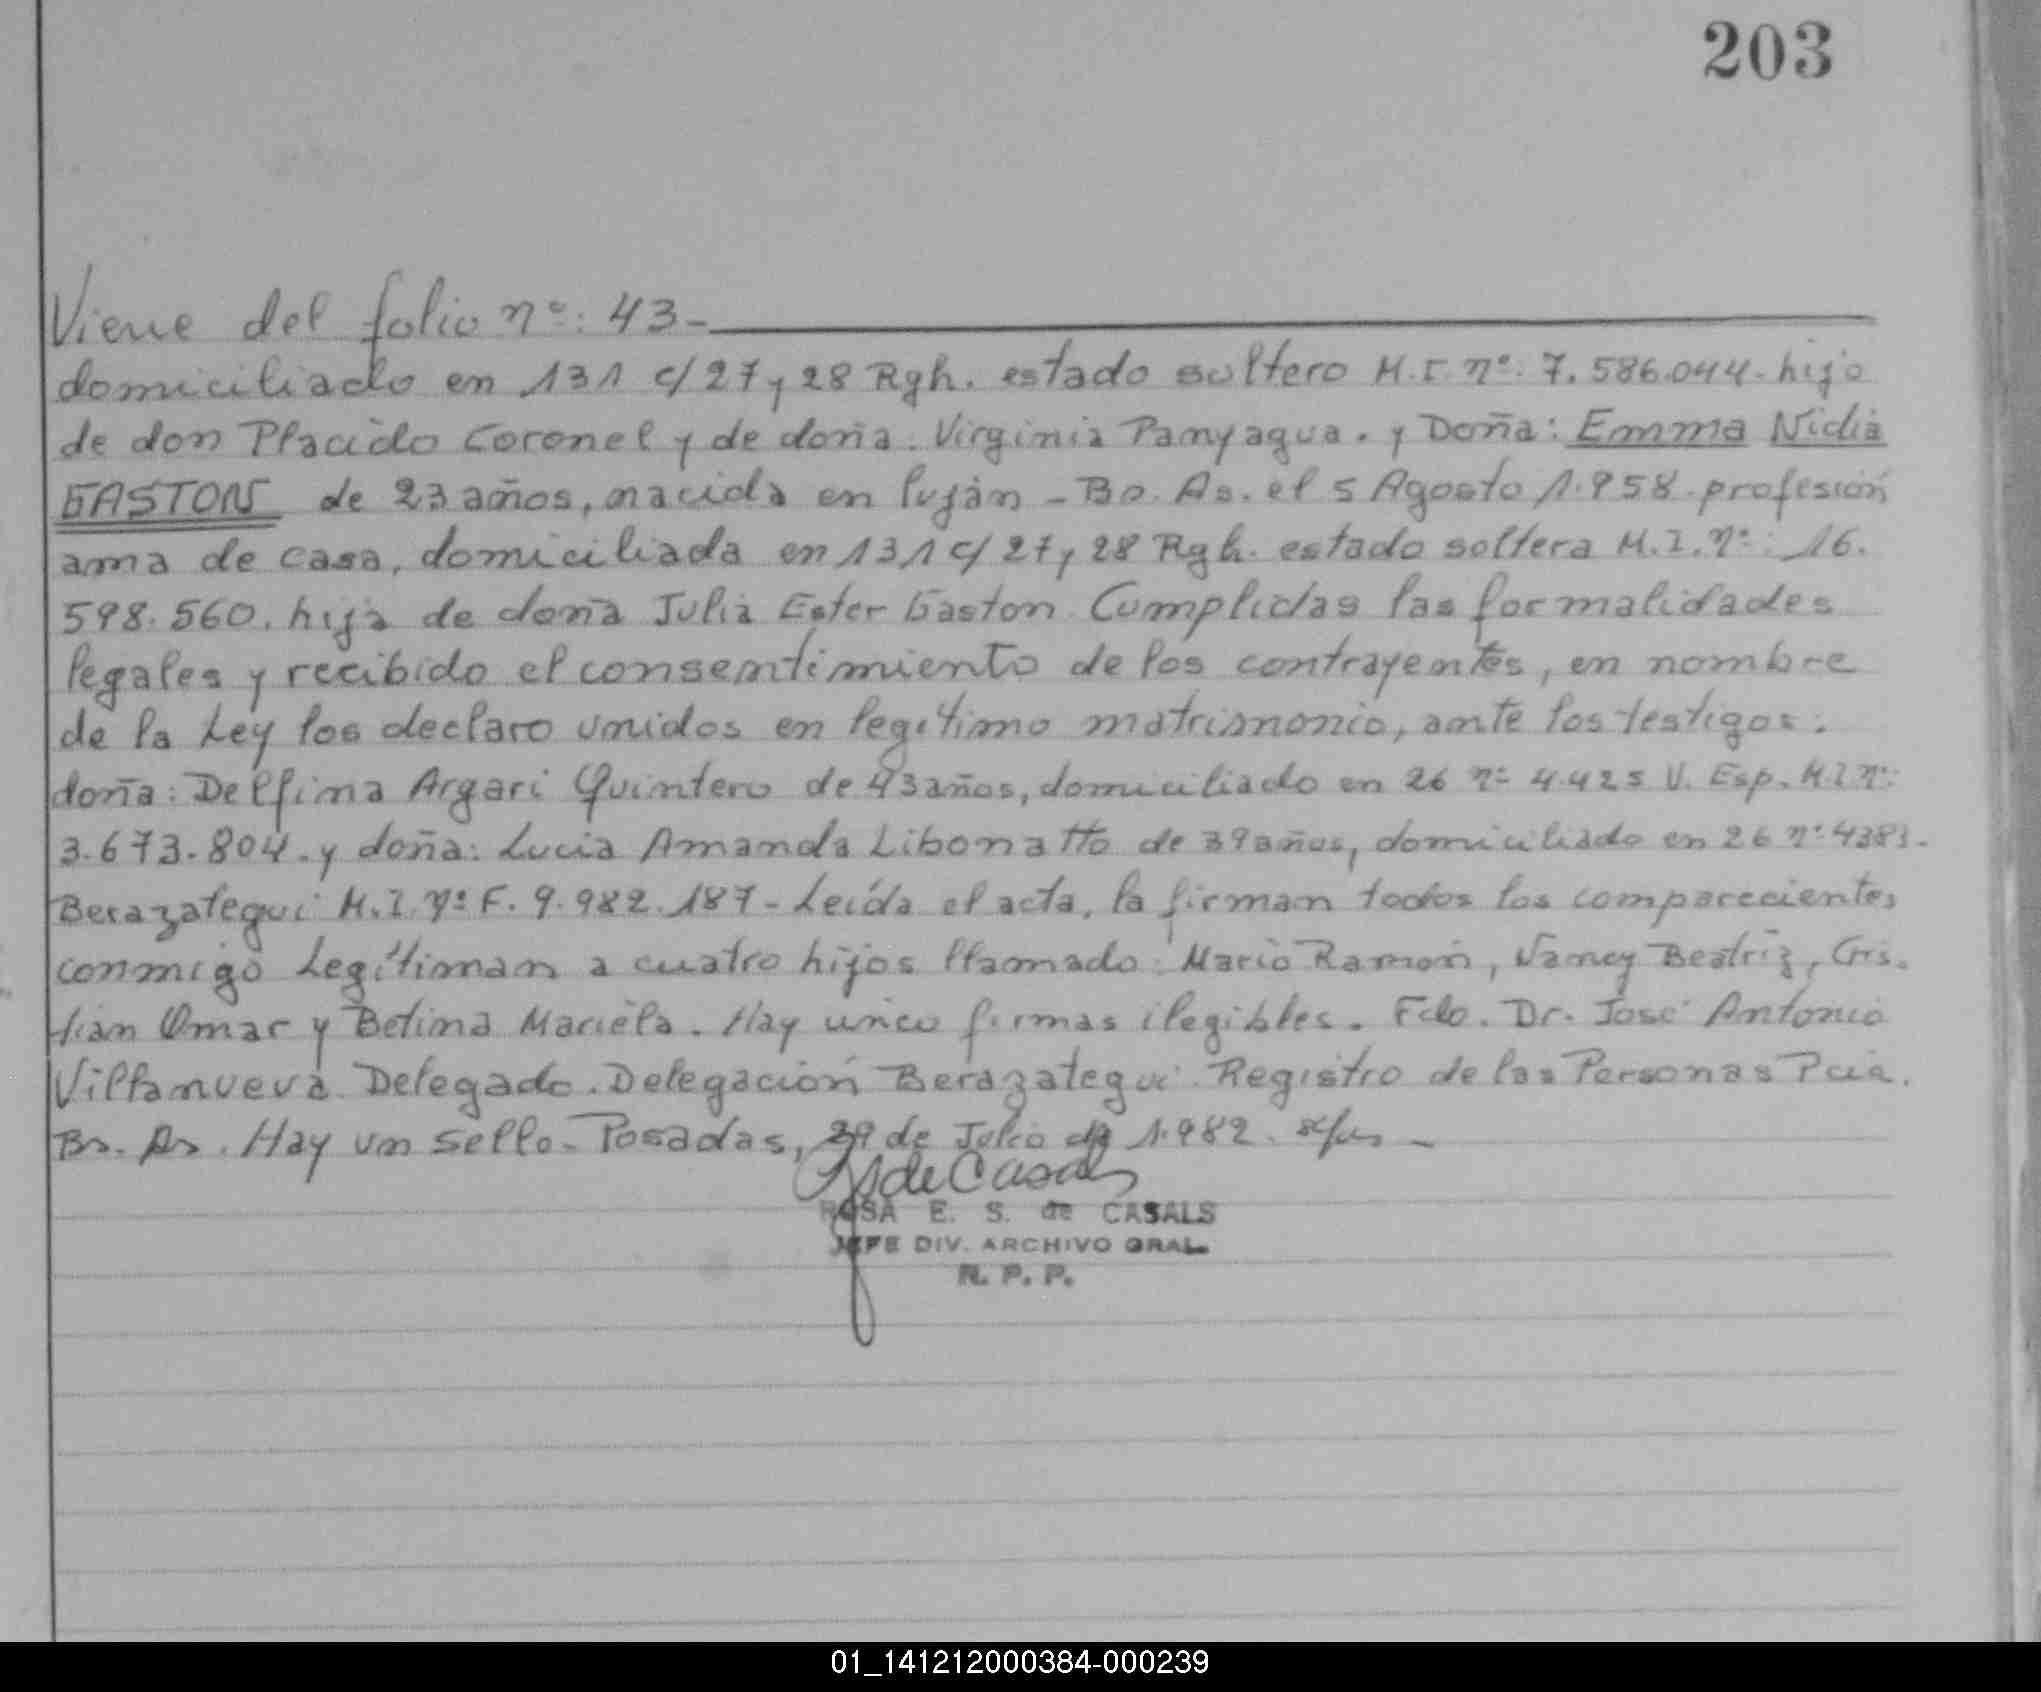 203
Viene del folio nº: 43-
domiciliado en 131 c/27 y 28 Rgh. estado soltero M.I. nº: 7.586.044. hijo
de don Placido Coronel y de doña: Virginia Panyagua. y Doña: Emma Nidia
GASTON de 23 años, nacida en luján - Bs. As. el 5 Agosto 1.958. profesión
ama de casa, domiciliada en 131 c/ 27 y 28 Rgh. estado soltera M.I. nº: 16.
598.560. hija de doña Julia Ester Gaston. Cumplidas las formalidades
legales y recibido el consentimiento de los contrayentes, en nombre
de la Ley los declaro unidos en legitimo matrimonio, ante los testigos:
doña: Delfina Argari Quintero de 43 años, domiciliado en 26 nº 4.425 V. Esp. M.I. nº:
3.673.804. y doña: Lucia Amanda Libonatto de 39 años, domiciliado en 26 nº 4383.
Berazategui M.I. nº F. 9.982.187- Leída el acta, la firman todos los comparecientes
conmigo Legítiman a cuatro hijos llamado: Mario Ramón, Nancy Beatriz, Cris.
tian Omar y Betina Mariela. Hay unico firmas ilegibles. Fdo. Dr. José Antonio
Villanueva Delegado. Delegación Berazategui. Registro de las Personas Pcia.
Bs. As. Hay un sello- Posadas, 29 de Julio de 1.982.
de Casals
ROSA E. S. de CASALS
JEFE DIV. ARCHIVO GRAL.
R. P. P.
01_141212000384-000239